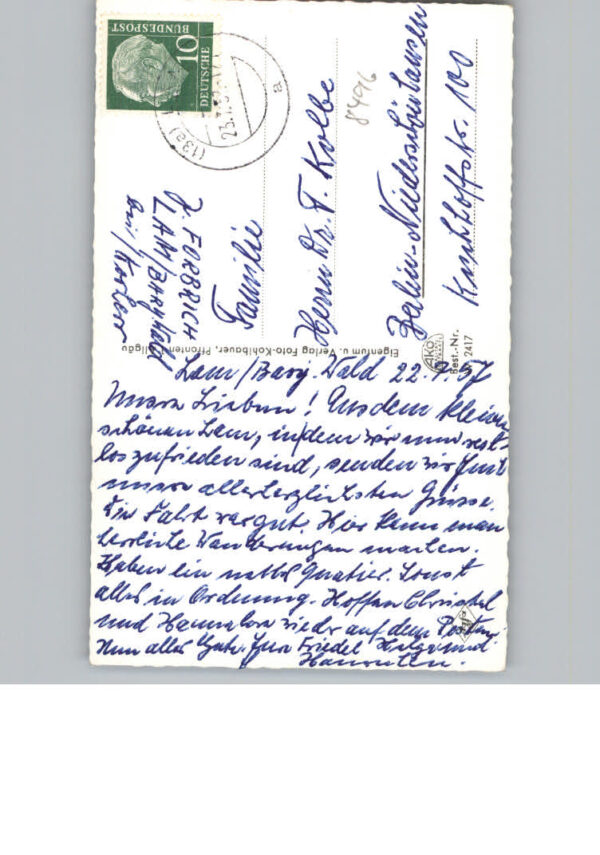 DEUTSCHE
BUNDESPOST
10
(13a)
23.
a
8496
Familie
Herrn Dr. T. Kolbe
Berlin-Niederschönhausen
Kuckhoffstr. 100
Z. FORBRICH
LAM/BAYR. Wald
bei
Eigentum u. Verlag Foto-Kohlbauer, Pfronten-Allgäu
AKO
Best.-Nr.
2417
Lam/Bayr. Wald 22.9.57
Unsere Lieben! Aus dem kleinen
schönen Lam, in dem wir nun rest-
los zufrieden sind, senden wir Euch
unsere allerherzlichsten Grüsse.
Die Fahrt war gut. Hier kann man
herrliche Wanderungen machen.
Haben ein nettes Quatier. Sonst
alles in Ordnung. Hoffen Christel
und Hannelore wieder auf dem Posten.
Nun alles Gute. Eure Friedel Helga und